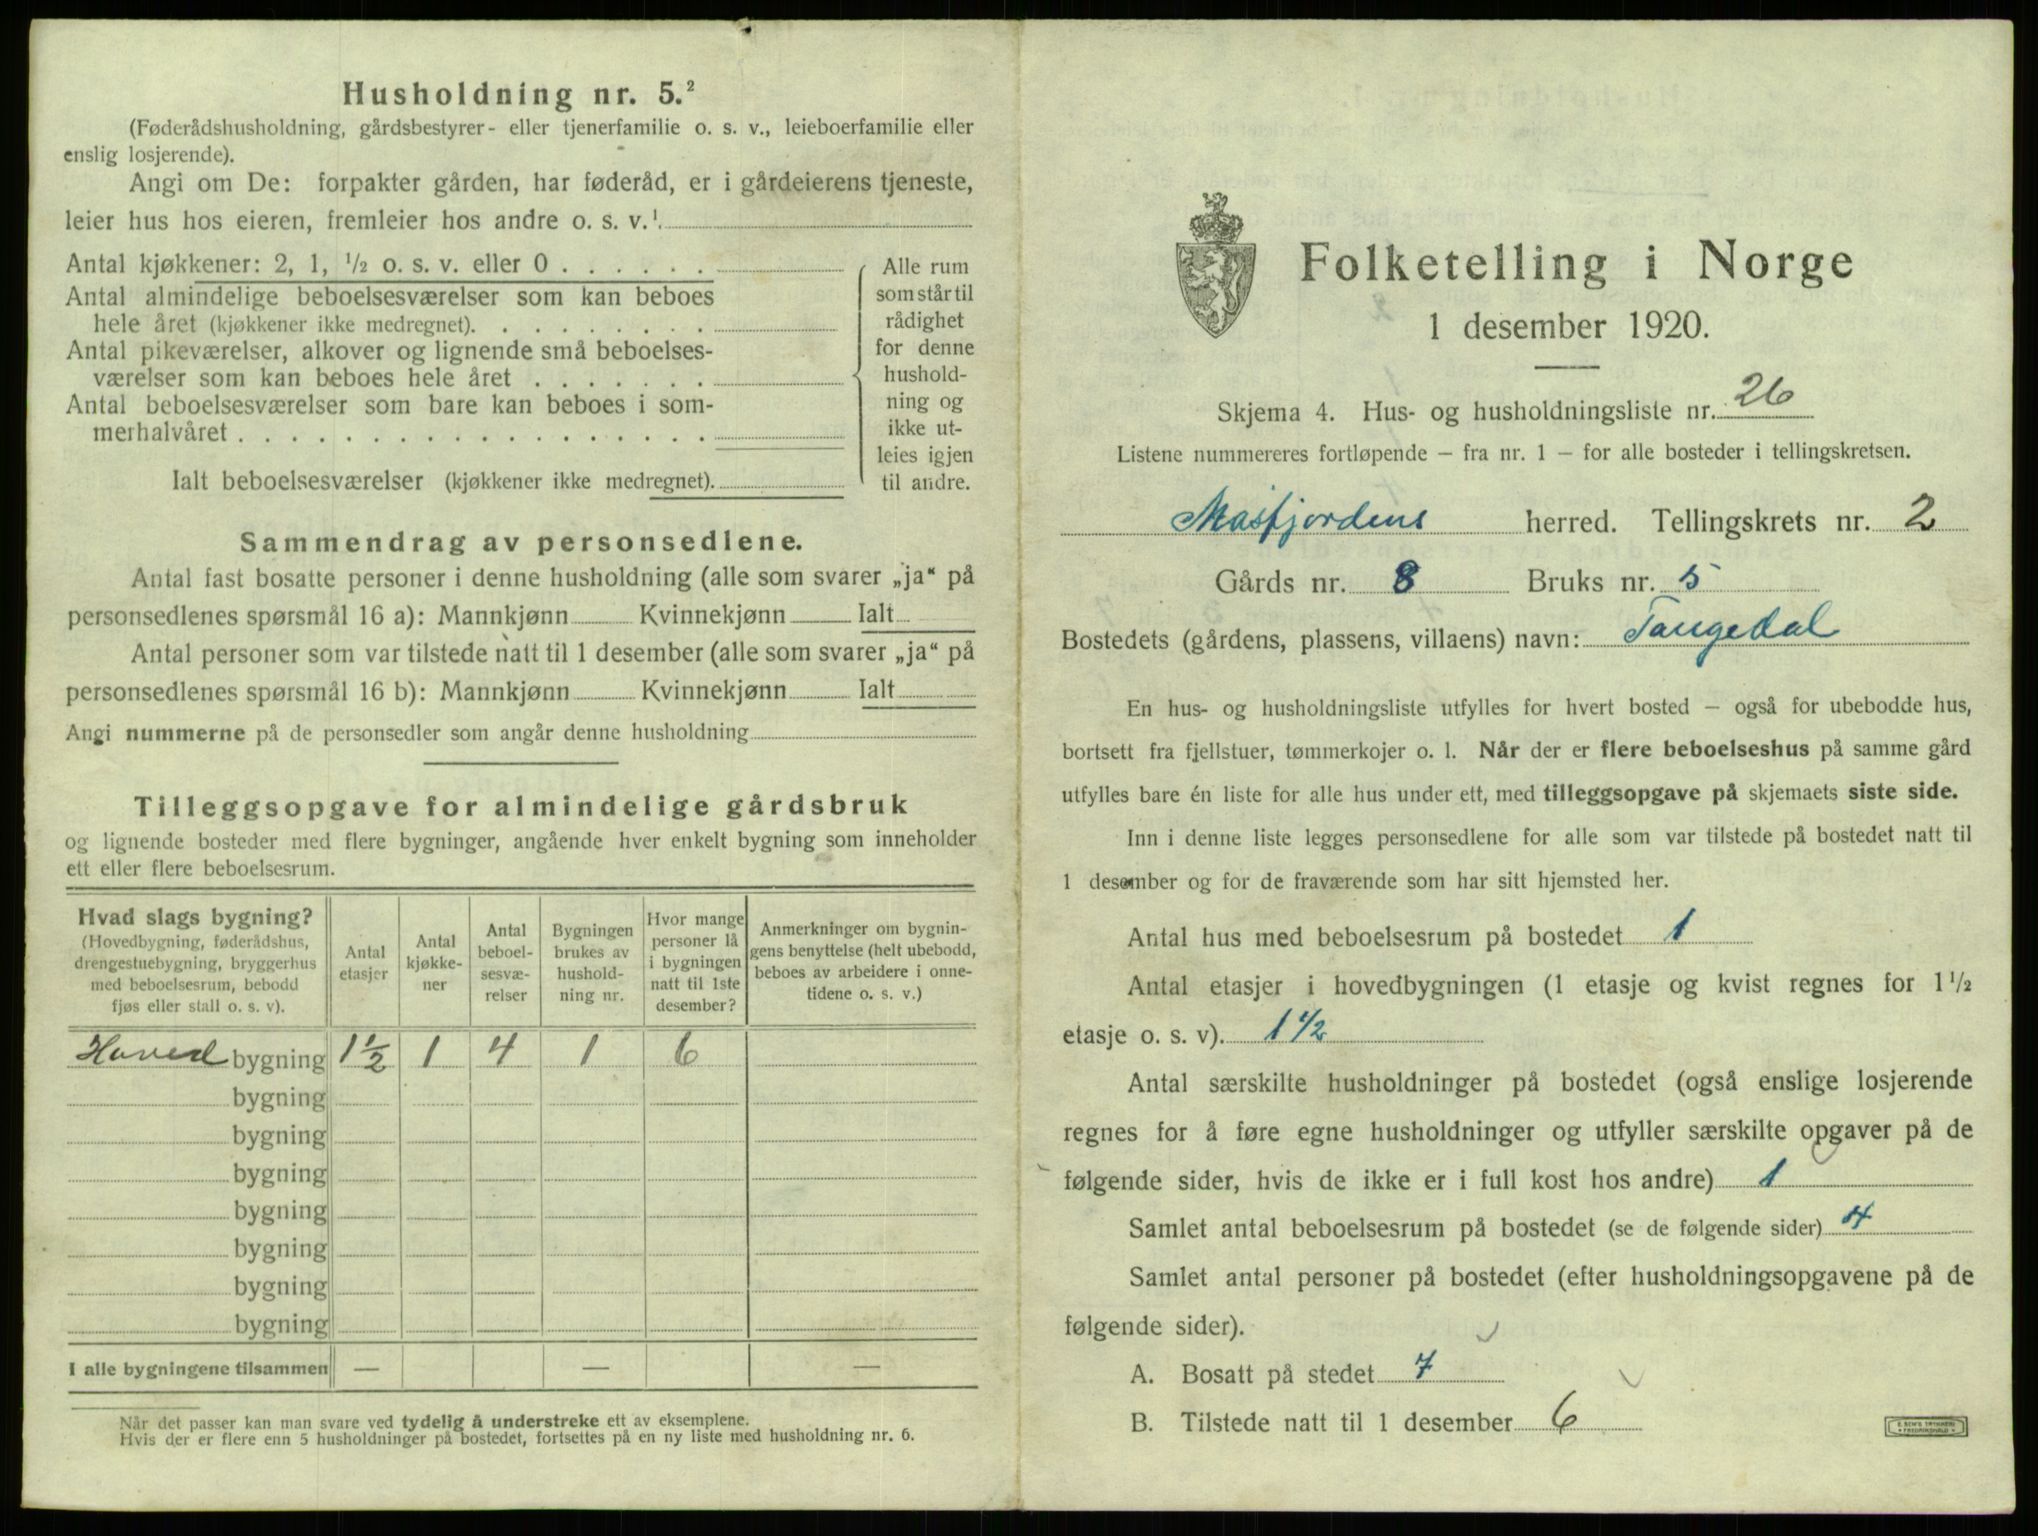 Husholdning nr. 5.²
(Føderådshusholdning, gårdsbestyrer- eller tjenerfamilie o. s. v., leieboerfamilie eller
enslig losjerende).
Angi om De: forpakter gården, har føderåd, er i gårdeierens tjeneste,
leier hus hos eieren, fremleier hos andre o. s. v.¹
Antal kjøkkener: 2, 1, ½ o. s. v. eller 0 . . . . . .
Antal almindelige beboelsesværelser som kan beboes
hele året (kjøkkener ikke medregnet). . . . . . . . .
Antal pikeværelser, alkover og lignende små beboelses-
værelser som kan beboes hele året . . . . . . .
Antal beboelsesværelser som bare kan beboes i som-
merhalvåret . . . . . . . . . . . . . . . . . .
Ialt beboelsesværelser (kjøkkener ikke medregnet).
Alle rum
som står til
rådighet
for denne
hushold-
ning og
ikke ut-
leies igjen
til andre.
Sammendrag av personsedlene.
Antal fast bosatte personer i denne husholdning (alle som svarer „ja“ på
personsedlenes spørsmål 16 a): Mannkjønn Kvinnekjønn Ialt
Antal personer som var tilstede natt til 1 desember (alle som svarer „ja“ på
personsedlenes spørsmål 16 b): Mannkjønn Kvinnekjønn Ialt
Angi nummerne på de personsedler som angår denne husholdning
Tilleggsopgave for almindelige gårdsbruk
og lignende bosteder med flere bygninger, angående hver enkelt bygning som inneholder
ett eller flere beboelsesrum.
Hvad slags bygning?
(Hovedbygning, føderådshus,
drengestuebygning, bryggerhus
med beboelsesrum, bebodd
fjøs eller stall o. s. v).
Antal
etasjer
Antal
kjøkke-
ner
Antal
beboel-
sesvæ-
relser
Bygningen
brukes av
hushold-
ning nr.
Hvor mange
personer lå
i bygningen
natt til 1ste
desember?
Anmerkninger om bygnin-
gens benyttelse (helt ubebodd,
beboes av arbeidere i onne-
tidene o. s. v.)
Hoved bygning 1½ 1 4 1 6
bygning
bygning
bygning
bygning
bygning
bygning
bygning
I alle bygningene tilsammen — — —
Når det passer kan man svare ved tydelig å understreke ett av eksemplene.
Hvis der er flere enn 5 husholdninger på bostedet, fortsettes på en ny liste med husholdning nr. 6.
Folketelling i Norge
1 desember 1920.
Skjema 4. Hus- og husholdningsliste nr. 26
Listene nummereres fortløpende — fra nr. 1 — for alle bosteder i tellingskretsen.
Masfjordens herred. Tellingskrets nr. 2
Gårds nr. 8 Bruks nr. 5
Bostedets (gårdens, plassens, villaens) navn: Tangedal
En hus- og husholdningsliste utfylles for hvert bosted — også for ubebodde hus,
bortsett fra fjellstuer, tømmerkojer o. l. Når der er flere beboelseshus på samme gård
utfylles bare én liste for alle hus under ett, med tilleggsopgave på skjemaets siste side.
Inn i denne liste legges personsedlene for alle som var tilstede på bostedet natt til
1 desember og for de fraværende som har sitt hjemsted her.
Antal hus med beboelsesrum på bostedet 1
Antal etasjer i hovedbygningen (1 etasje og kvist regnes for 1½
etasje o. s. v). 1½
Antal særskilte husholdninger på bostedet (også enslige losjerende
regnes for å føre egne husholdninger og utfyller særskilte opgaver på de
følgende sider, hvis de ikke er i full kost hos andre) 1
Samlet antal beboelsesrum på bostedet (se de følgende sider) 4
Samlet antal personer på bostedet (efter husholdningsopgavene på de
følgende sider).
A. Bosatt på stedet 7
B. Tilstede natt til 1 desember 6